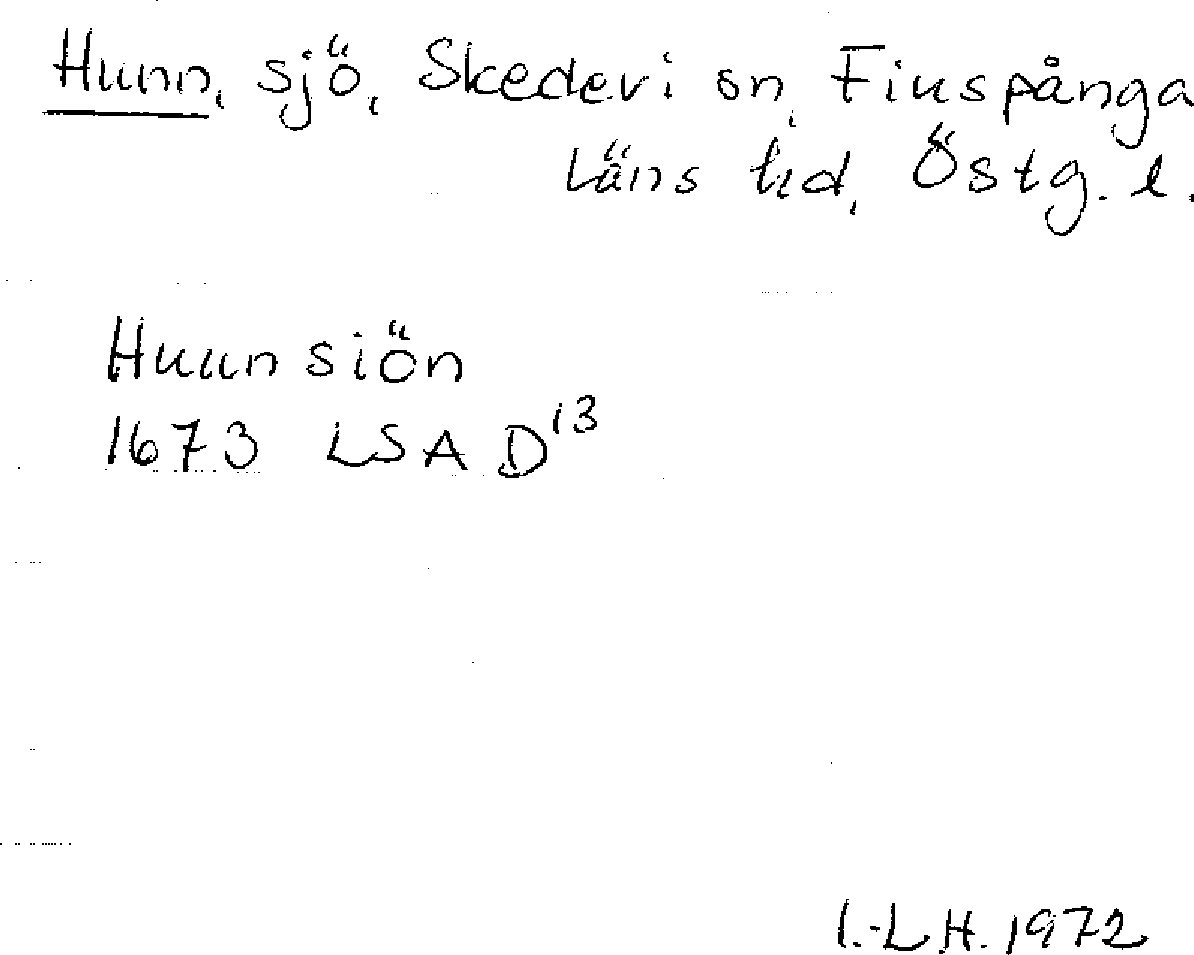 Hunn, sjö, Skedevi sn, Finspånga
läns hd, Östg. l.
Huunsiön
1673 LSA D¹³
I.-L H. 1972